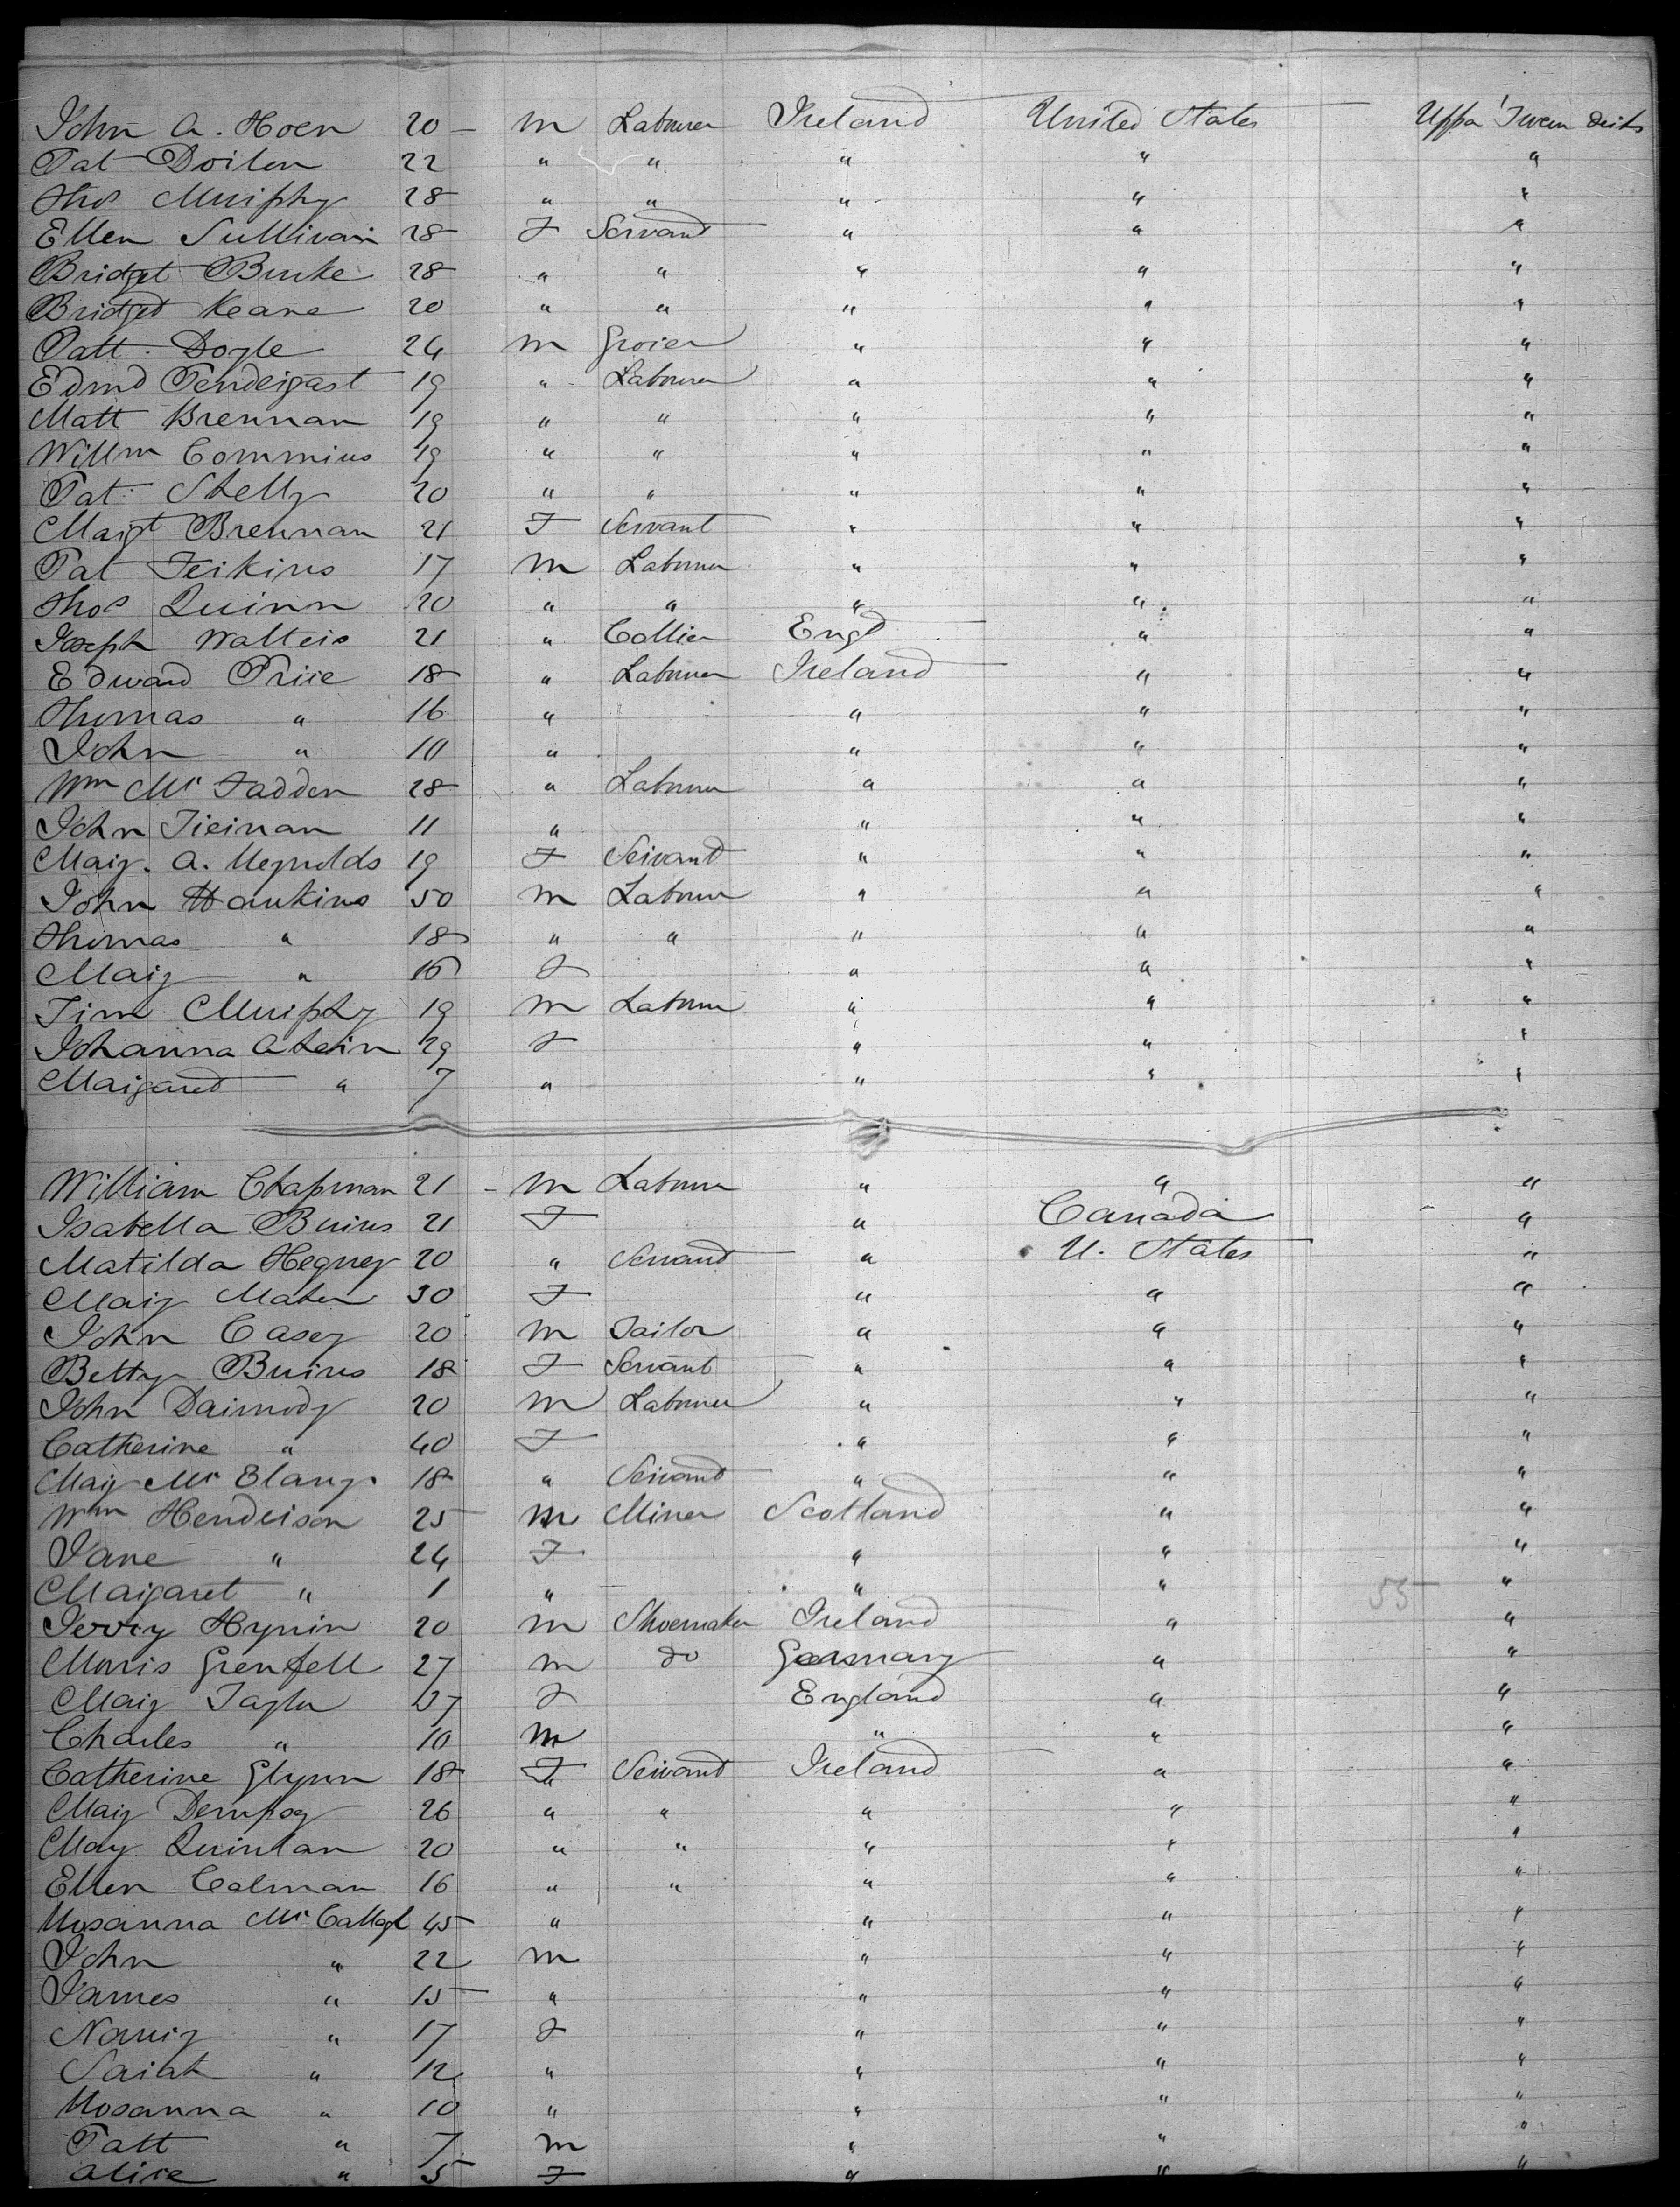 John A. Hoen 20 m Labourer Ireland United States Upper 'Tween decks
Pat Doilon 22 " " " " "
Thos Murphy 28 " " " " "
Ellen Sullivan 28 F Servant " " "
Bridget Burke 28 " " " " "
Bridget Keane 20 " " " " "
Patt. Doyle 24 m Grocer " " "
Edmd Pendergast 19 " Labourer " " "
Matt Brennan 19 " " " " "
Willm Commins 19 " " " " "
Pat Skelly 20 " " " " "
Margt Brennan 21 F Servant " " "
Pat Ferkins 17 m Labourer " " "
Thos Quinn 20 " " " " "
Joseph Walters 21 " Collier Engd " "
Edward Price 18 " Labourer Ireland " "
Thomas " 16 " " " "
John " 10 " " " "
Wm Mc Fadden 28 " Labourer " " "
John Tiernan 11 " " " "
Mary. A. Reynolds 19 F Servant " " "
John Hankins 50 m Labourer " " "
Thomas " 18 " " " " "
Mary " 16 F " " "
Tim Murphy 19 m Labourer " " "
Johanna Ahern 29 F " " "
Margaret " 7 " " " "
William Chapman 21 m Labourer " " "
Isabella Burns 21 F " Canada "
Matilda Hegney 20 " Servant " U. States "
Mary Maher 30 F " " "
John Casey 20 m Tailor " " "
Betty Burns 18 F Servant " " "
John Darmody 20 m Labourer " " "
Catherine " 40 F " " "
Mary Mc Elany 18 " Servant " " "
Wm Henderson 25 m Miner Scotland " "
Jane " 24 F " " "
Margaret " 1 " " " 55 "
Jerry Hynin 20 m Shoemaker Ireland " "
Moris Grenfell 27 m do Germany " "
Mary Taylor 37 F England " "
Charles " 10 m " " "
Catherine Glynn 18 F Servant Ireland " "
Mary Dempsy 26 " " " " "
Mary Quinlan 20 " " " " "
Ellen Colman 16 " " " " "
Rosanna Mc Callagh 45 " " " "
John " 22 m " " "
James " 15 " " " "
Nancy " 17 F " " "
Sarah " 12 " " " "
Rosanna " 10 " " " "
Patt " 7 m " " "
Alice " 5 F " " "